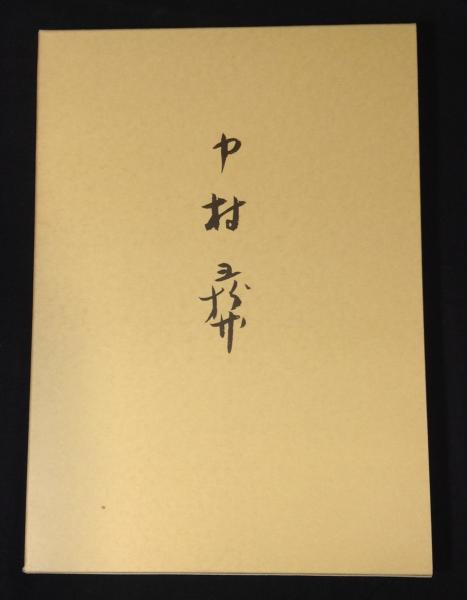 中村彝